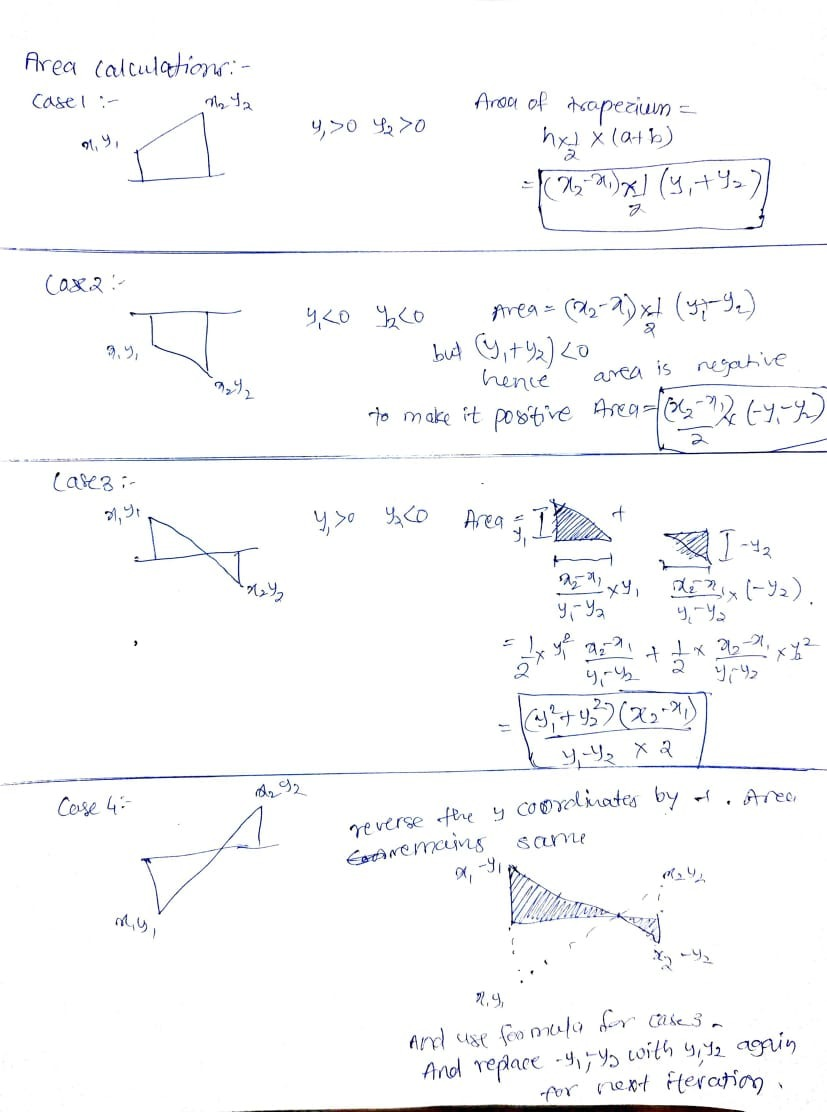 Area Calculations:-
Case 1 :-
x₁ y₁
x₂ y₂
y₁>0 y₂>0
Area of trapezium =
h×1/2 × (a+b)
= (x₂-x₁)×1/2 (y₁+y₂)
Case 2 :-
x₁ y₁
x₂ y₂
y₁<0 y₂<0
Area = (x₂-x₁)×1/2 (y₁-y₂)
but (y₁+y₂)<0
hence area is negative
to make it positive Area = (x₂-x₁)/2 × (-y₁-y₂)
Case 3 :-
x₁, y₁
x₂ y₂
y₁>0 y₂<0
Area = y₁ I + I -y₂
(x₂-x₁)/(y₁-y₂) × y₁ (x₂-x₁)/(y₁-y₂) × (-y₂).
= 1/2 × y₁² (x₂-x₁)/(y₁-y₂) + 1/2 × (x₂-x₁)/(y₁-y₂) × y₂²
= (y₁²+y₂²)(x₂-x₁)/(y₁-y₂ × 2)
Case 4:-
x₂ y₂
x₁ y₁
reverse the y coordinates by -1. Area
remains same
x₁ -y₁
x₂ y₂
x₂ -y₂
x₁ y₁
And use formula for case 3.
And replace -y₁, -y₂ with y₁, y₂ again
for next iteration.